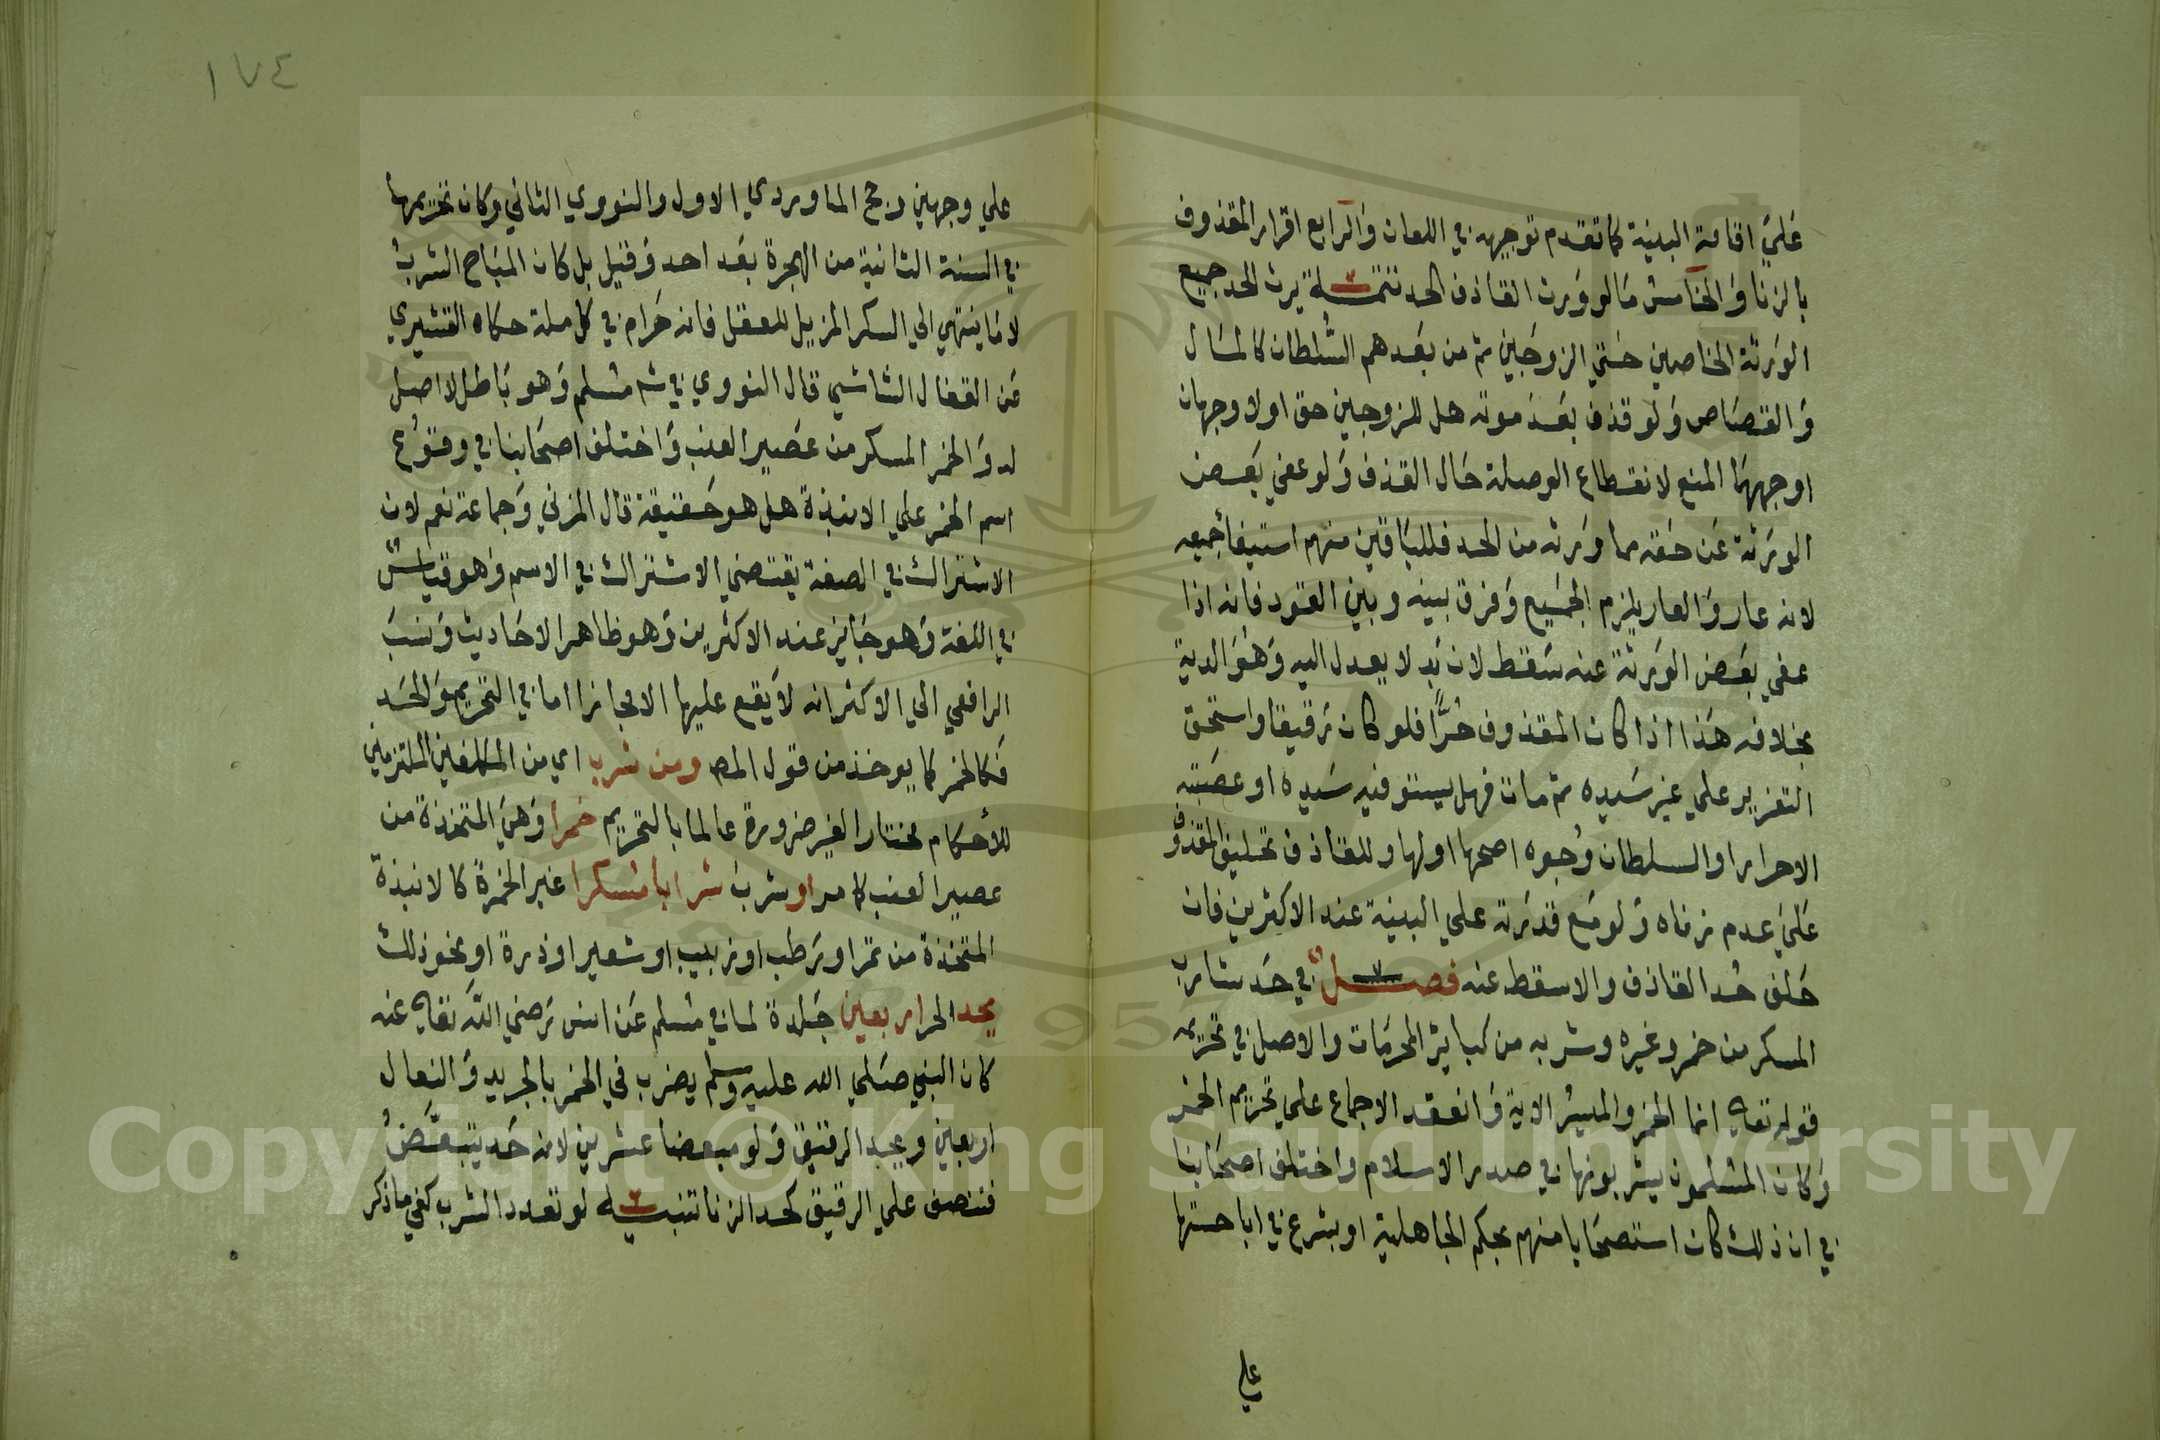 علي اقامة البينة كما تقدم توجيهه في اللعان والرابع اقرار المقذوف
بالزنا والخامس مالو ورث القاذف الحد تتمــة يرث الحد جميع
الورثة الخاصين حتي الزوجين ثم من بعدهم السلطان كالمال
والقصاص ولو قذف بعد موته هل للزوجين حق اولا وجهان
اوجههما المنع لانقطاع الوصلة حال القذف ولو عفي بعض
الورثة عن حقه مما ورثه من الحد فللباقين منهم استيفأ جميعه
لانه عار والعار يلزم الجميع وفرق بينه وبين القود فانه اذا
عفي بعض الورثة عنه سقط لان بد لا يعدل اليه وهو الدية
بخلافه هذا اذا كان المقذوف حرًّا فلو كان رقيقا واستحق
التعزير علي غير سيده ثم مات فهل يستوفيه سيده او عصبته
الاحرار او السلطان وجوه اصحها اولها وللقاذف تحليف المقذوف
علي عدم زناه ولو مع قدرته علي البينة عند الاكثرين فان
حلف حد القاذف والا سقط عنه فصــل في حد شارب
المسكر من خمر وغيره وشربه من كبائر المحرمات والاصل في تحريمه
قوله تعالي انما الخمر والميسر الاية وانعقد الاجماع علي تحريم الخمر
وكان المسلمون يشربونها في صدر الاسلام واختلف اصحابنا
في ان ذلك كان استصحابا منهم بحكم الجاهلية او بشرع في اباحتها
علي
١٧٤
علي وجهين رجح الماوردي الاول والنووي الثاني وكان تحريمها
في السنة الثانية من الهجرة بعد احد وقيل بل كان المباح الشرب
لا ما ينتهي الي السكر المزيل للعقل فانه حرام في كل ملة حكاه القشيري
عن القفال الشاشي قال النووي في شم مسلم وهو باطل لا اصل
له والخمر المسكر من عصير العنب واختلف اصحابنا في وقوع
اسم الخمر علي الانبذة هل هو حقيقة قال المزني وجماعة نعم لان
الاشتراك في الصفة يقتضي الاشتراك في الاسم وهو قياس
في اللغة وهو جايز عند الاكثرين وهو ظاهر الاحاديث ونسب
الرافعي الي الاكثر انه لا يقع عليها الا مجازا اما في التحريم والحد
فكالخمر كما يوخذ من قول المصـ ومن شرب اي من المكلفين الملتزمين
للأحكام مختارا لغير ضرورة عالما بالتحريم خمرا وهي المتخذة من
عصير العنب كما مر او شرب شرابا مسكرا غير الخمرة كالانبذة
المتخذة من تمر او رطب او زبيب او شعير او ذرة او نحو ذلك
يحد الحر اربعين جلدة لما في مسلم عن انس رضي الله تعالي عنه
كان النبي صلي الله عليه وسلم يضرب في الخمر بالجريد والنعال
اربعين ويحد الرقيق ولو مبعضا عشرين لانه حد يتبعض
فتنصف علي الرقيق كحد الزنا تنبيــه لو تعدد الشرب كفي ما ذكر
Copyright © King Saud University